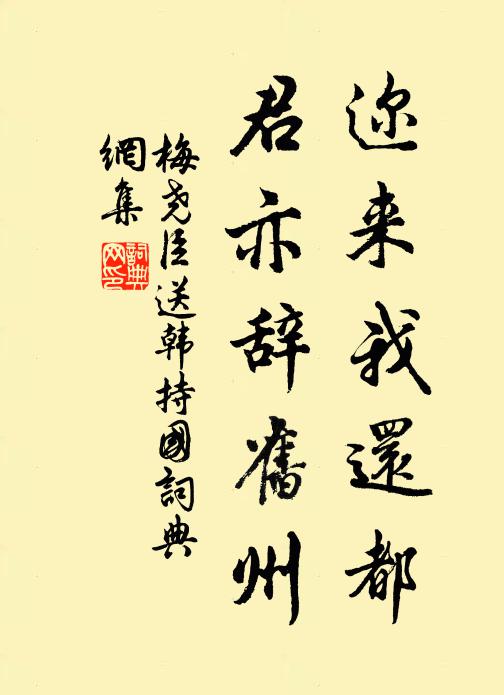 迩来我還都
君亦辞舊州
梅尧臣送韩持國詞典
網集
詞典
网印